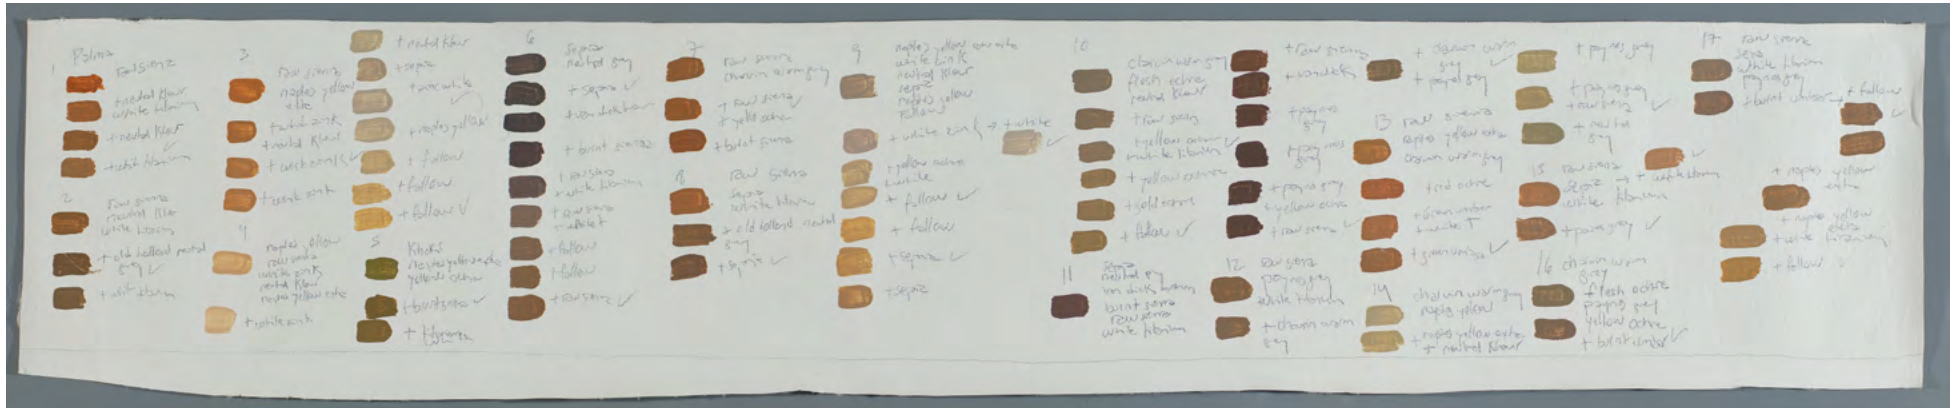 Palma
1
raw sienz
+ neutral klaur
white titanium
+ neutral klaur
+ white titanium ✓
2
raw sienna
neutral klar
white titanium
+ old holland neutral
grey ✓
+ white titanium
3
raw sienna
naples yellow
extra
+ white zink
+ neutral klaur
✓
+ white zink
4
naples yellow
raw sienna
white zink
neutral klaur
naples yellow extra
+ white zink
+ neutral klaur
+ sepia
✓
+ naples yellow
+ follow
+ follow
+ follow ✓
5
Khaki
naples yellow extra
yellow ochre
+ burnt sienna ✓
+ titanium
white
6
sepia
neutral grey
+ sepia ✓
+ van dick brown
+ burnt sienna
+ raw sienna
+ white titanium
+ raw sienna
+ follow
+ follow
+ raw sienna ✓
7
raw sienna
charvin warm grey
+ raw sienna ✓
+ yellow ochre
+ burnt sienna
8
raw sienna
sepia
white titanium
+ old holland neutral
grey
+ sepia ✓
9
naples yellow extra
white zink
neutral klaur
sepia
naples yellow
follow
+ white zink → + white ✓
+ yellow ochre
+ white
+ follow ✓
+ follow
+ sepia ✓
+ sepia
10
charvin warm grey
flesh ochre
neutral klaur
+ raw sienna
+ yellow ochre ✓
+ white titanium
+ yellow ochre
+ gold ochre
+ follow ✓
11
sepia
neutral grey
van dick brown
burnt sienna
raw sienna
white titanium
+ raw sienna
+ vandick
+ paynes
grey
+ paynes
grey
+ paynes grey
+ yellow ochre
+ raw sienna ✓
12
raw sienna
paynes grey
white titanium
+ charvin warm
grey
+ charvin warm
grey ✓
+ paynes grey
13
raw sienna
naples yellow extra
charvin warm grey
+ red ochre
+ green umber
+ white T
+ green umber ✓
14
charvin warm grey
naples yellow
+ naples yellow extra
+ neutral klaur
+ paynes grey
+ paynes grey
+ raw sienna ✓
+ neutral
grey
15
raw sienna
sepia → + white titanium ✓
white titanium
+ paynes grey ✓
16
charvin warm
grey
+ flesh ochre
paynes grey
yellow ochre
+ burnt umber ✓
17
raw sienna
sepia
white titanium
paynes grey
+ burnt umber → + follow
✓
+ naples yellow
extra
+ naples yellow
extra
+ white titanium
+ follow ✓